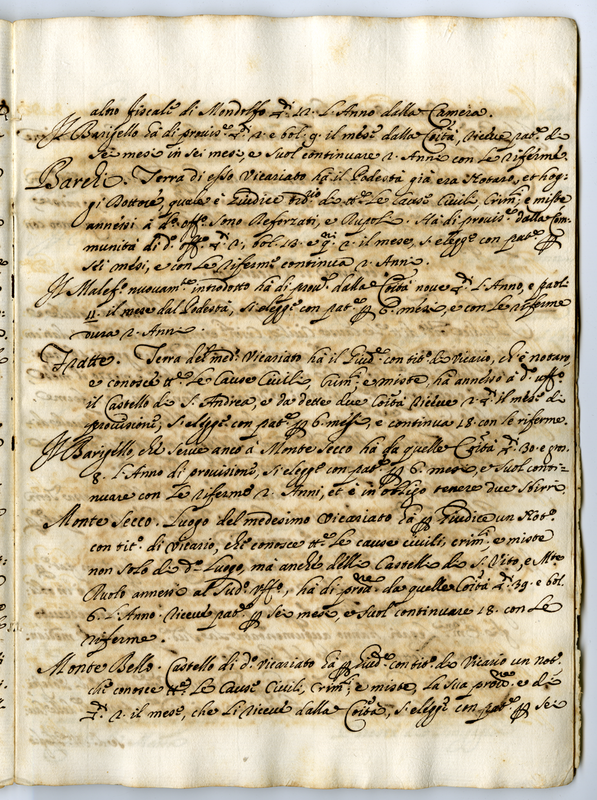 altro fiscale di Mondolfo 12. l'Anno dalla Camera.
Il Barigello ha di provis.e 2. e bol. 9. il mese dalla Coĩtà, riceve pat.e de
sei mesi in sei mesi, e suol continuare 2. Anni con le riferme.
Barchi. Terra di esso Vicariato ha il Podestà già era Notaro, et hog-
gi Dottore, quale è Giudice di tt.e le cause Civili, Crim.i, e miste
annessi à d.o off.o sono Reforzati, e Rupoli. Ha di provis.e dalla Com-
munità di d.o off.o 2, bol. 10. e 2. il mese, si elegge con pat.e per
sei mesi, e con le riferme continua 2. Anni.
Il Malef.o nuovam.te introdotto ha di prov.e dalla Coĩtà nove l'Anno, e paoli
11. il mese dal Podestà, si elegge con pat.e per 6. mesi, e con le riferme
dura 2. Anni.
Fratte. Terra del med.o Vicariato ha il Giud.e con tit.o di Vicario, ch'è notaro
e conosce tt.e le Cause Civili, Crim.i, e miste, ha annesso à d.o uff.o
il Castello di S. Andrea, e da dette due Coĩtà riceve 2. il mese di
provisione, si elegge con pat.e per 6 mesi, e continua 18. con le riferme.
Il Barigello, che serve anco à Monte Secco ha da quelle Coĩtà 30. e gros.
8. l'Anno di provisione, si elegge con pat.e per 6. mesi, e suol conti-
nuare con le riferme 2. Anni, et è in obligo tenere due sbirri.
Monte Secco. Luogo del medesimo Vicariato ha per Giudice un Not.o
con tit.o di Vicario, che conosce tt.e le cause civili, crim.i, e miste
non solo di d.o Luogo, ma anche delli Castelli di S. Vito, e M.te
Ruolo annessi al Sud.o Uff.o, ha di prov.e da quelle Coĩtà 39. e bol.
6. l'Anno riceve pat.e per sei mesi, e suol continuare 18. con le
riferme.
Monte Bello. Castello di d.o vicariato ha per giud.e con tit.o di Vicario un not.o
che conosce tt.e le Cause Civili, Crim.i, e miste, la sua prov.e è di
2. il mese, che li riceve dalla Coĩtà, si elegge con pat.e per sei